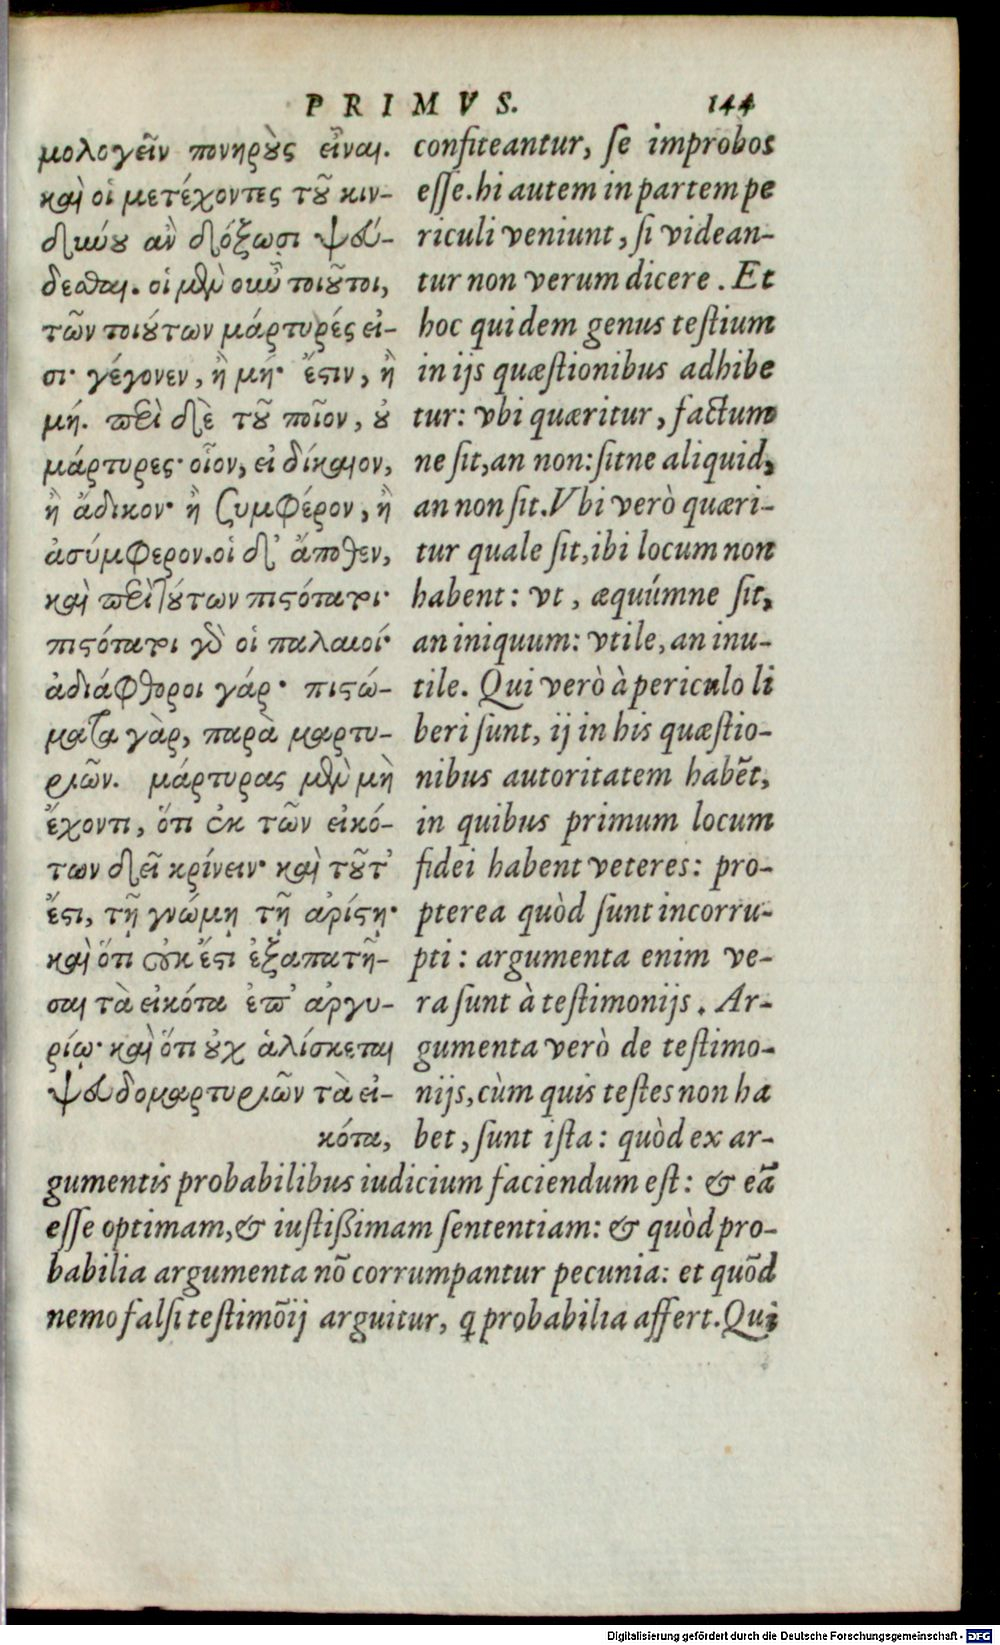 PRIMVS. 144
μολογεῖν πονηροὺς εἶναι.
καὶ οἱ μετέχοντες τοῦ κιν-
δύνου ἂν δόξωσι ψεύ-
δεσθαι. οἱ μὲν οὖν τοιοῦτοι,
τῶν τοιούτων μάρτυρές εἰ-
σι· γέγονεν, ἢ μή· ἔστιν, ἢ
μή. περὶ δὲ τοῦ ποῖον, οὐ
μάρτυρες· οἷον, εἰ δίκαιον,
ἢ ἄδικον· ἢ συμφέρον, ἢ
ἀσύμφερον. οἱ δ' ἄποθεν,
καὶ περὶ τούτων πιστότατοι·
πιστότατοι γὰρ οἱ παλαιοί·
ἀδιάφθοροι γάρ· πιστώ-
ματα γὰρ, παρὰ μαρτυ-
ριῶν. μάρτυρας μὲν μὴ
ἔχοντι, ὅτι ἐκ τῶν εἰκό-
των δεῖ κρίνειν· καὶ τοῦτ'
ἔστι, τῇ γνώμῃ τῇ ἀρίστῃ·
καὶ ὅτι οὐκ ἔστι ἐξαπατῆ-
σαι τὰ εἰκότα ἐπ' ἀργυ-
ρίῳ· καὶ ὅτι οὐχ ἁλίσκεται
ψευδομαρτυριῶν τὰ εἰ-
κότα,
confiteantur, se improbos
esse. hi autem in partem pe
riculi veniunt, si videan-
tur non verum dicere. Et
hoc quidem genus testium
in ijs quæstionibus adhibe
tur: vbi quæritur, factum
ne sit, an non: sitne aliquid,
an non sit. Vbi verò quæri-
tur quale sit, ibi locum non
habent: vt, æquúmne sit,
an iniquum: vtile, an inu-
tile. Qui verò à periculo li
beri sunt, ij in his quæstio-
nibus autoritatem habēt,
in quibus primum locum
fidei habent veteres: pro-
pterea quòd sunt incorru-
pti: argumenta enim ve-
ra sunt à testimonijs. Ar-
gumenta verò de testimo-
nijs, cùm quis testes non ha
bet, sunt ista: quòd ex ar-
gumentis probabilibus iudicium faciendum est: & eā
esse optimam, & iustißimam sententiam: & quòd pro-
babilia argumenta nō corrumpantur pecunia: et quōd
nemo falsi testimōij arguitur, q probabilia affert. Qui
Digitalisierung gefördert durch die Deutsche Forschungsgemeinschaft - DFG